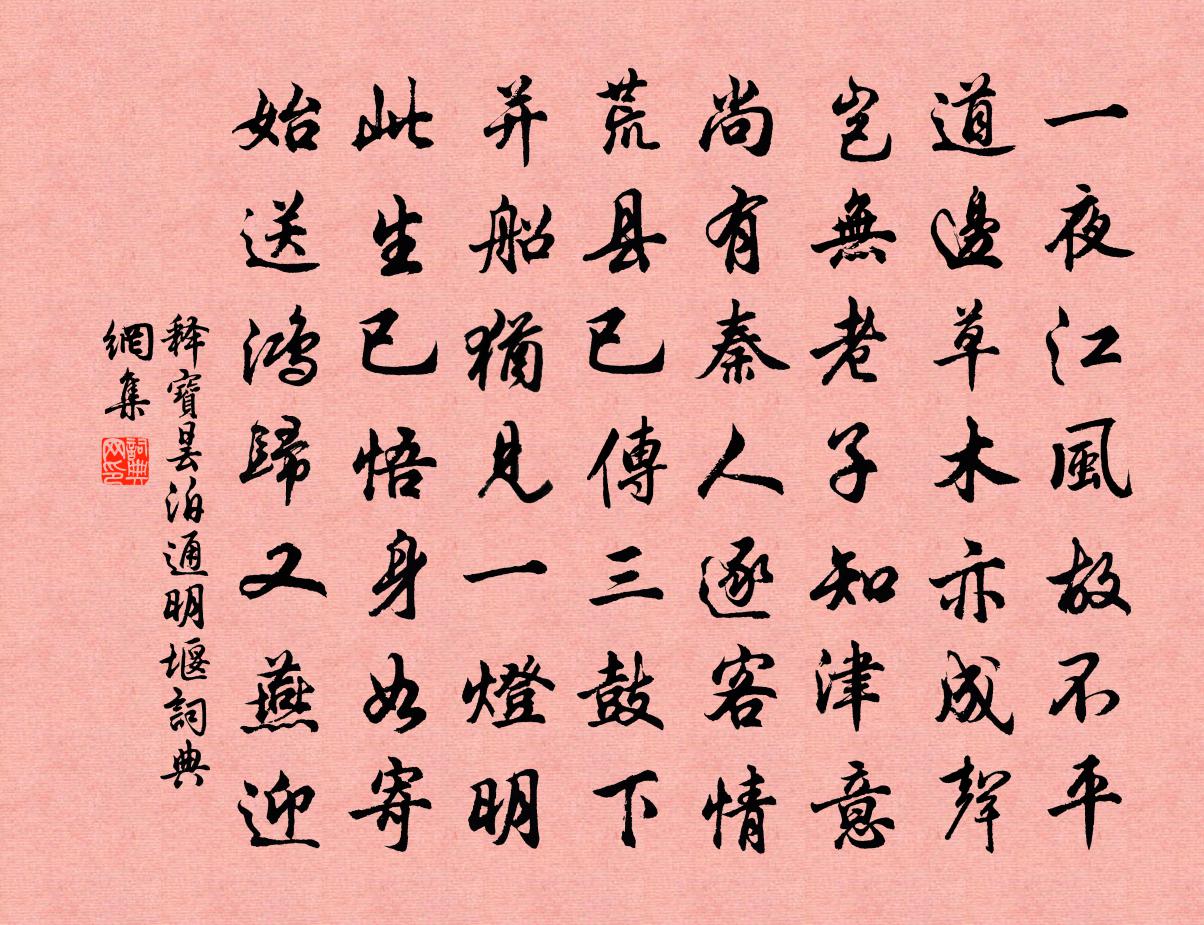 一夜江風故不平
道邊草木亦成聲
豈無老子知津意
尚有秦人逐客情
荒县已傳三鼓下
并船猶見一燈明
此生已悟身如寄
始送鴻歸又燕迎
释寶曇泊通明堰詞典
網集
詞典
网印